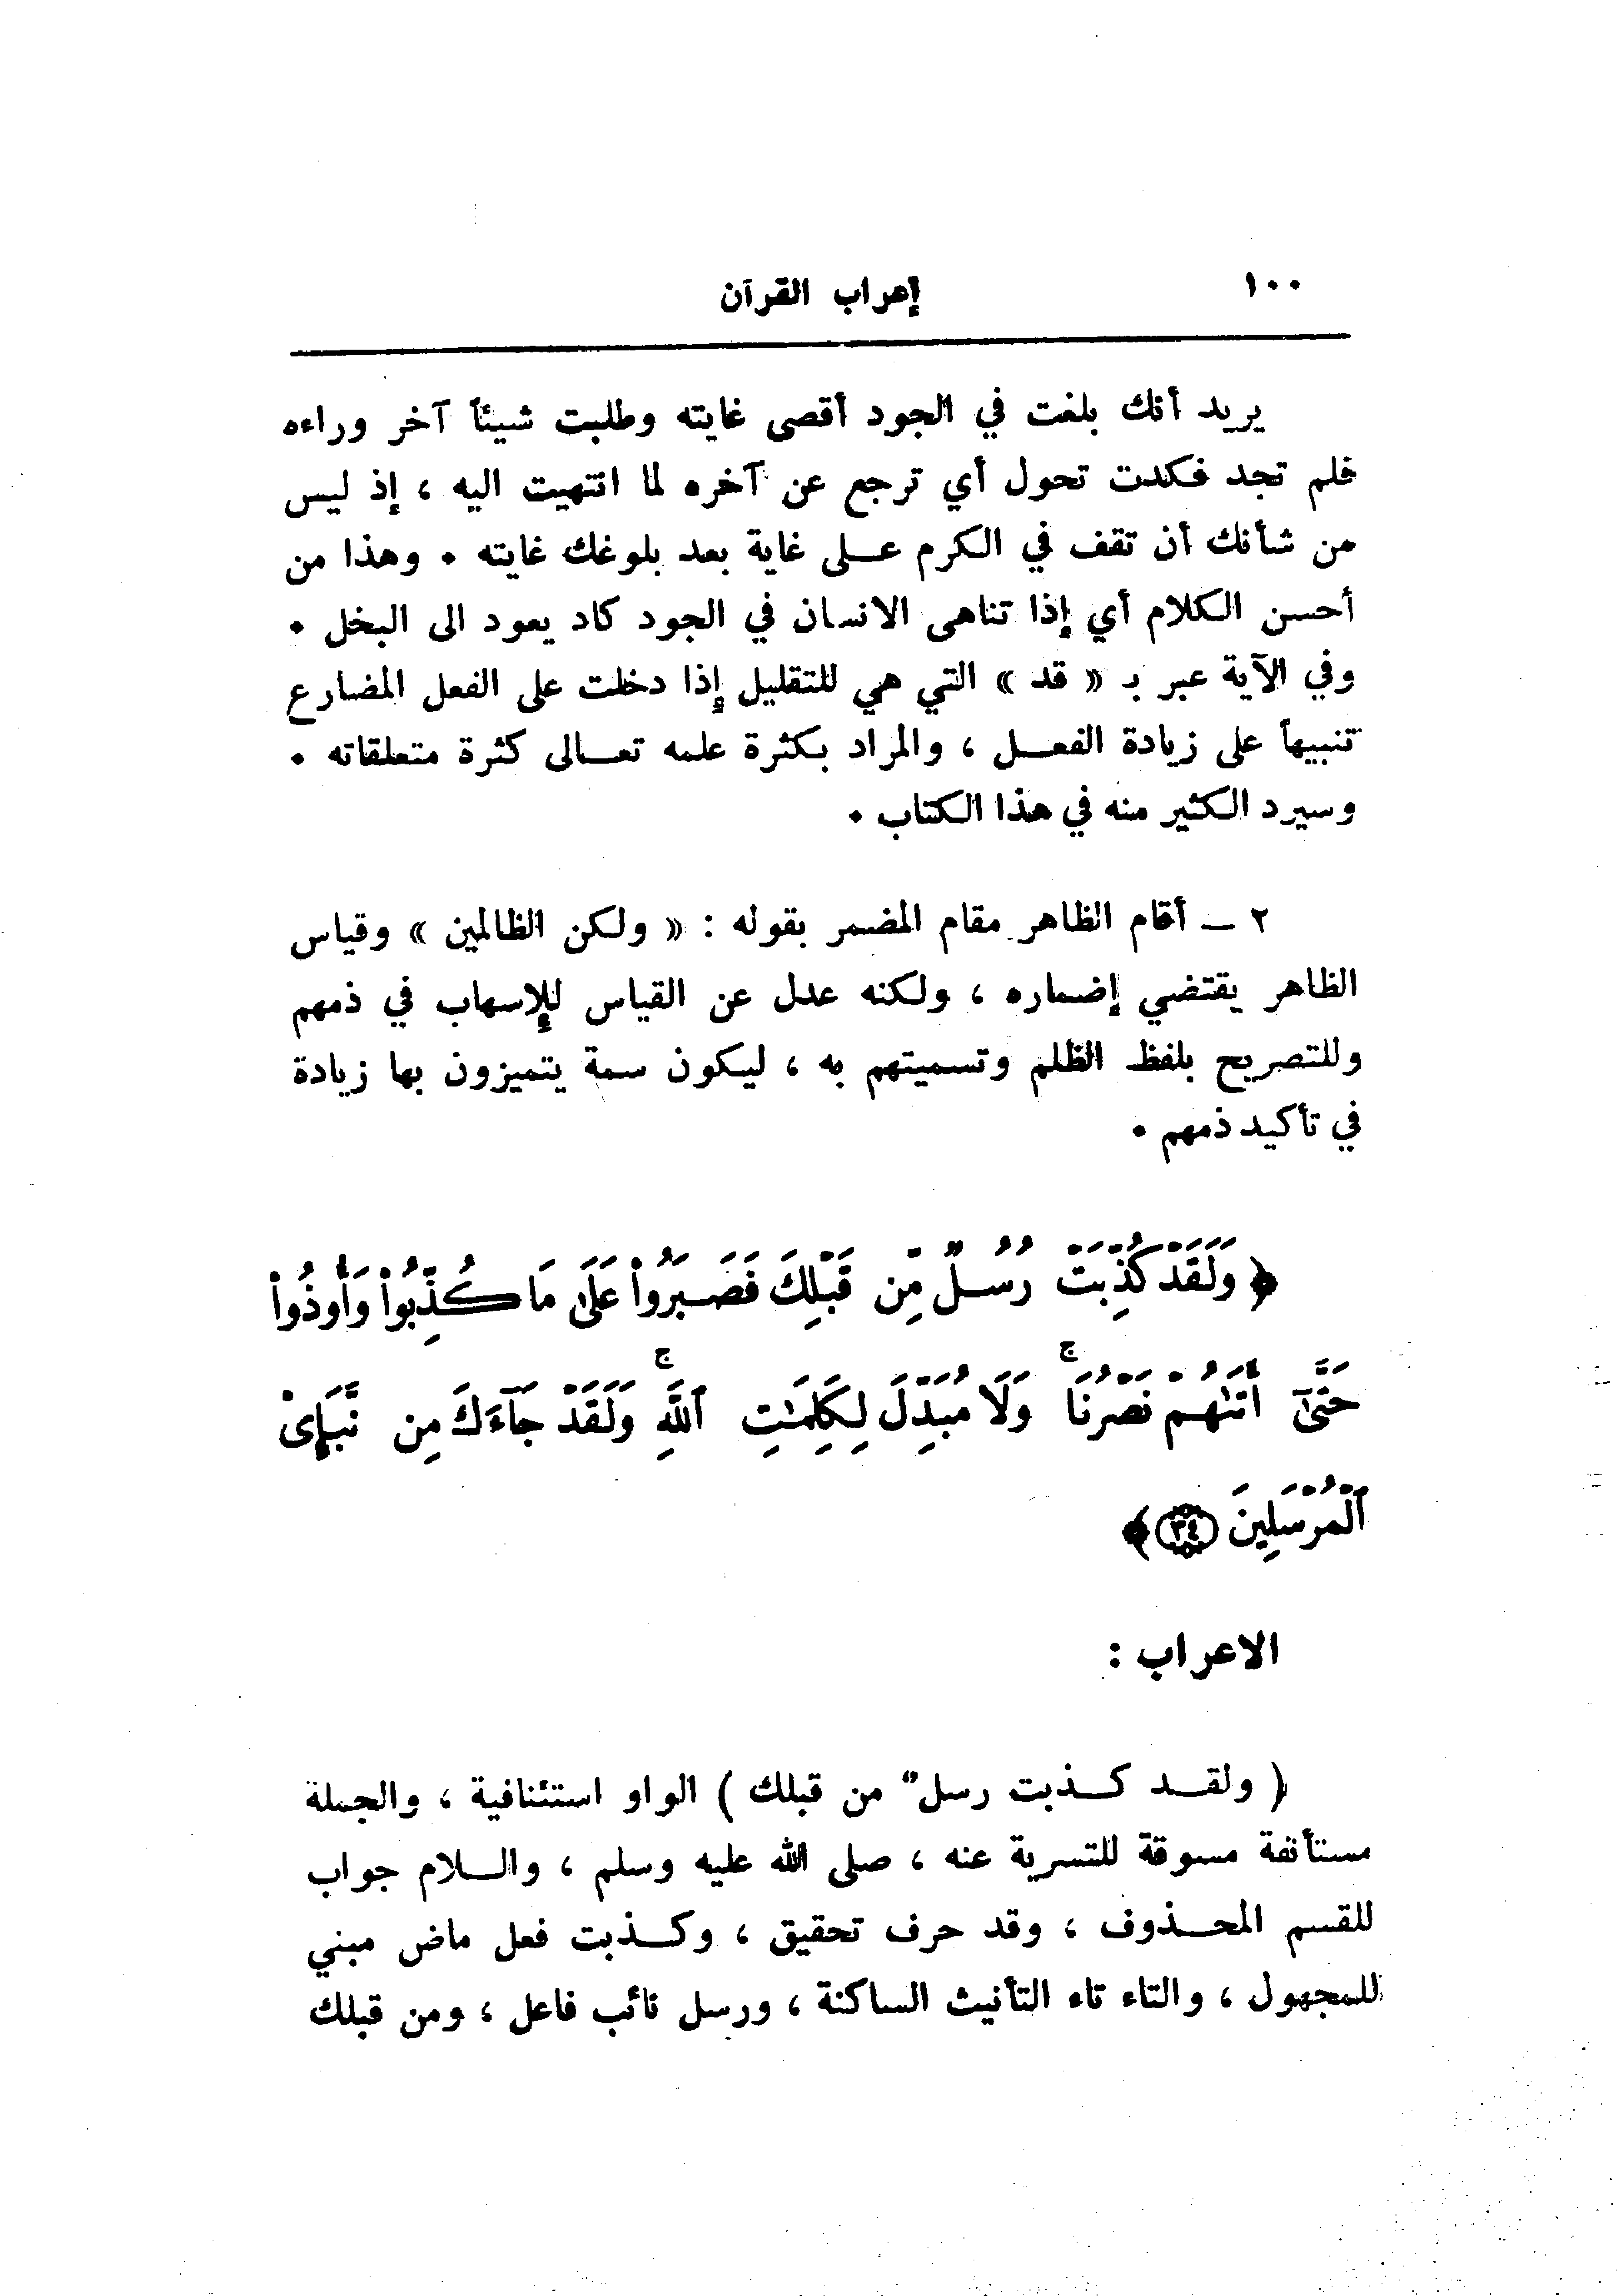 ١٠٠ إعراب القرآن
يريد أنك بلغت في الجود أقصى غايته وطلبت شيئاً آخر وراءه
فلم تجد فكدت تحول أي ترجع عن آخره لما انتهيت اليه ، إذ ليس
من شأنك أن تقف في الكرم على غاية بعد بلوغك غايته . وهذا من
أحسن الكلام أي إذا تناهى الانسان في الجود كاد يعود الى البخل .
وفي الآية عبر بـ « قد » التي هي للتقليل إذا دخلت على الفعل المضارع
تنبيهاً على زيادة الفعل ، والمراد بكثرة علمه تعالى كثرة متعلقاته .
وسيرد الكثير منه في هذا الكتاب .
٢ ــ أقام الظاهر مقام المضمر بقوله : « ولكن الظالمين » وقياس
الظاهر يقتضي إضماره ، ولكنه عدل عن القياس للإسهاب في ذمهم
وللتصريح بلفظ الظلم وتسميتهم به ، ليكون سمة يتميزون بها زيادة
في تأكيد ذمهم .
﴿ وَلَقَدْ كُذِّبَتْ رُسُلٌ مِّن قَبْلِكَ فَصَبَرُواْ عَلَىٰ مَا كُذِّبُواْ وَأُوذُواْ
حَتَّىٰٓ أَتَىٰهُمْ نَصْرُنَا ۚ وَلَا مُبَدِّلَ لِكَلِمَٰتِ ٱللَّهِ ۚ وَلَقَدْ جَآءَكَ مِن نَّبَإِىْ
ٱلْمُرْسَلِينَ ٣٤ ﴾
الاعراب :
( ولقد كذبت رسلٌ من قبلك ) الواو استئنافية ، والجملة
مستأنفة مسوقة للتسرية عنه ، صلى الله عليه وسلم ، واللام جواب
للقسم المحذوف ، وقد حرف تحقيق ، وكذبت فعل ماض مبني
للمجهول ، والتاء تاء التأنيث الساكنة ، ورسل نائب فاعل ، ومن قبلك